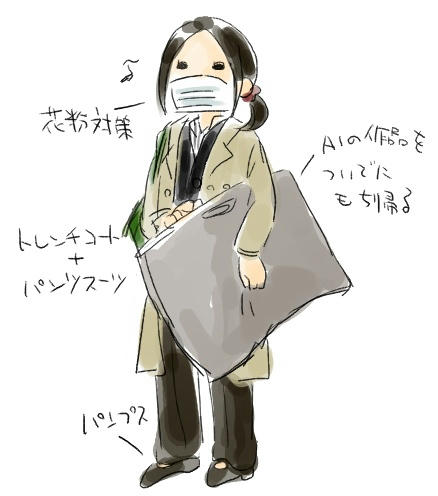 花粉対策
A1の作品を
ついでに
もち帰る
トレンチコート
+
パンツスーツ
パンプス